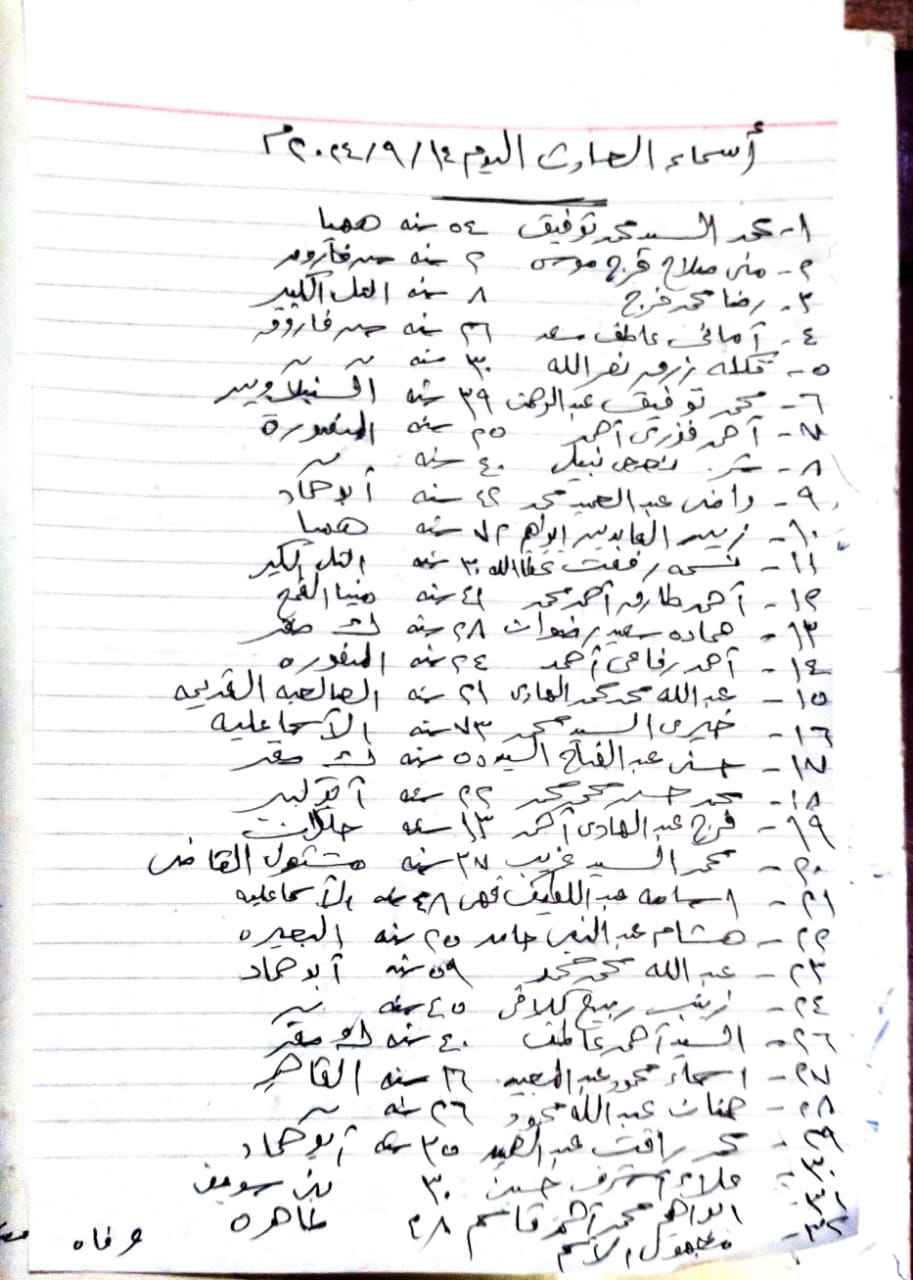 أسماء الحادث اليوم ١٤/٩/٢٠٢٤م
١- محمد السيد محمد توفيق ٥٤ سنه ههيا
٢- منى صلاح فرج موسى ٢ سنه
٣- رضا محمد فرج ٨ سنه التل الكبير
٤- أمانى عاطف سعد ٢٦ سنه
٥- زرق نصر الله ٣٠ سنه
٦- محمد توفيق عبد الرحمن ٣٩ سنه السنبلاوين
٧- أحمد فوزى أحمد ٢٥ سنه المنصورة
٨- نبيل ٤٠ سنه
٩- راضى عبد الحميد محمد ٤٢ سنه أبو حماد
١٠- زين العابدين ابراهيم ٧٢ سنه ههيا
١١- نسمه رفعت عطا الله ٣٠ سنه التل الكبير
١٢- أحمد طارق أحمد محمد ٤١ سنه منيا القمح
١٣- حماده سعيد رضوان ٢٨ سنه ك صقر
١٤- أحمد رفاعى أحمد ٢٤ سنه المنصوره
١٥- عبد الله محمد محمد الهادى ٢١ سنه الصالحيه القديمه
١٦- خيرى السيد محمد ٧٣ سنه الأسماعليه
١٧- حسنى عبد الفتاح السيد ٥٥ سنه ك صقر
١٨- محمد حسن محمد محمد ٢٢ سنه
١٩- فرج عبد الهادى أحمد ١٣ سنه
٢٠- محمد السيد غريب ٢٧ سنه مشتول القاضى
٢١- اسامه عبد اللطيف فهمى ٤٨ سنه الأسماعليه
٢٢- هشام عبد النبى حامد ٢٥ سنه البحيره
٢٣- عبد الله محمد محمد ٥٩ سنه أبو حماد
٢٤- زينب ربيع ٤٥ سنه
٢٦- السيد أحمد عاطف ٤٠ سنه ك صقر
٢٧- اسماء محمود عبد المجيد ٢٦ سنه القاهره
٢٨- حنان عبد الله محمود ٢٦ سنه
٢٩- محمد رأفت عبد الحميد ٣٥ سنه أبو حماد
٣٠- علاء أشرف حسين ٣٠ بنى سويف
٣١- ابراهيم محمد أحمد قاسم ٤٨ طاهره
٣٢- مجهول الأسم وفاه